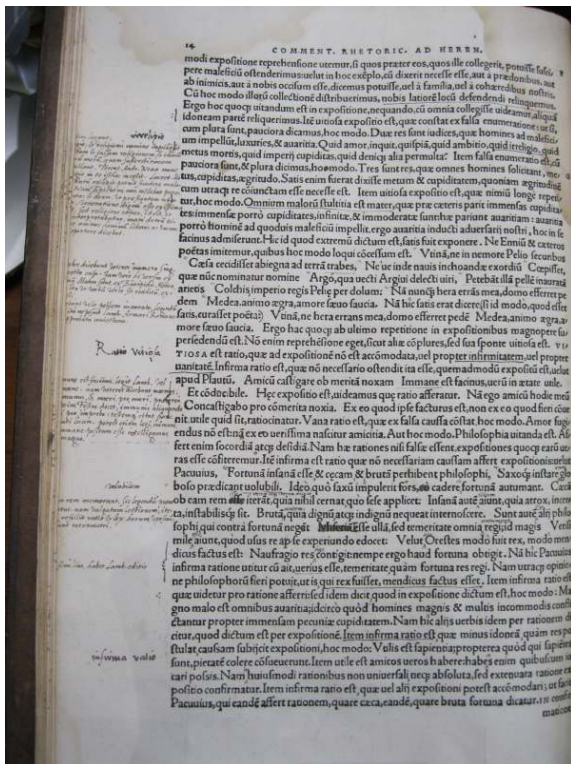 14 COMMENT. RHETORIC. AD HEREN.
modi expositione reprehensione utemur, si quos præter eos, quos ille collegerit, potuisse susci-
pere maleficiū ostenderimus: uelut in hoc exēplo, cū dixerit necesse esse, aut à prædonibus, aut
ab inimicis, aut à nobis occisum esse, dicemus potuisse, uel à familia, uel à cohæredibus nostris.
Cū hoc modo illorū collectionē distribuerimus, nobis latiorē locū defendendi relinquemus.
Ergo hoc quoq; uitandum est in expositione, nequando, cū omnia collegisse uideamur, aliquā
idoneam partē reliquerimus. Itē uitiosa expositio est, quæ constat ex falsa enumeratione: ut si,
cum plura sunt, pauciora dicamus, hoc modo. Duæ res sunt iudices, quæ homines ad malefici-
um impellūt, luxuries, & auaritia. Quid amor, inquit, quispiā, quid ambitio, quid irreligio, quid
metus mortis, quid imperij cupiditas, quid deniq; alia permulta? Item falsa enumeratio est, cū
pauciora sunt, & plura dicimus, hoc modo. Tres sunt res, quæ omnes homines solicitant, me-
tus, cupiditas, ægritudo. Satis enim fuerat dixisse metum & cupiditatem, quoniam ægritudinē
cum utraq; re cōiunctam esse necesse est. Item uitiosa expositio est, quæ nimiū longe repeti-
tur, hoc modo. Omnium malorū stultitia est mater, quæ cæteris parit immensas cupidita-
tes: immensæ porrò cupiditates, infinitæ, & immoderatæ sunt: hæ pariunt auaritiam: auaritia
porrò hominē ad quoduis maleficiū impellit. ergo auaritia inducti aduersarij nostri, hoc in se
facinus admiserunt. Hic id quod extremū dictum est, satis fuit exponere. Ne Enniū & cæteros
poëtas imitemur, quibus hoc modo loqui cōcessum est. Vtinā, ne in nemore Pelio securibus
Cæsa cecidisset abiegna ad terrā trabes, Neue inde nauis inchoandæ exordiū Cœpisset,
quæ nūc nominatur nomine Argò, qua uecti Argiui delecti uiri, Petebāt illā pellē inauratā
arietis Colchis, imperio regis Peliæ per dolum: Nā nunq̄ hera errās mea, domo efferret pe
dem Medea, animo ægra, amore sæuo saucia. Nā hic satis erat dicere, si id modo, quod esset
satis, curasset poëta: Vtinā, ne hera errans mea, domo efferret pedē Medea, animo ægra, a-
more sæuo saucia. Ergo hac quoq; ab ultimo repetitione in expositionibus magnopere su-
persedendū est. Nō enim reprehēsione eget, sicut aliæ cōplures, sed sua sponte uitiosa est. VI
TIOSA est ratio, quæ ad expositionē nō est accōmodata, uel propter infirmitatem, uel propter
uanitatē. Infirma ratio est, quæ nō necessario ostendit ita esse, quemadmodū expositū est, uelut
apud Plautū. Amicū castigare ob meritā noxam Immane est facinus, uerū in ætate utile.
Et cōducibile. Hęc expositio est, uideamus quę ratio afferatur. Nā ego amicū hodie meū
Concastigabo pro cōmerita noxia. Ex eo quod ipse facturus est, non ex eo quod fieri cōue
nit utile quid sit, ratiocinatur. Vana ratio est, quæ ex falsa caussa cōstat, hoc modo. Amor fugi-
endus nō est: nā ex eo uerissima nascitur amicitia. Aut hoc modo. Philosophia uitanda est. Af-
fert enim socordiā atq; desidiā. Nam hæ rationes nisi falsæ essent, expositiones quoq; earū ue-
ras esse cōfiteremur. Itē infirma est ratio quæ nō necessariam caussam affert expositionis: uelut
Pacuuius, Fortunā insanā esse & cæcam & brutā perhibent philosophi, Saxoq; instare glo
boso prædicant uolubili. Ideo quò saxū impulerit fors, cadere fortunā autumant. Cæcā
ob eam rem iterāt, quia nihil cernat, quo sese applicet: Insanā autē aiunt, quia atrox, incer
ta, instabilisq; sit. Brutā, quia dignū atq; indignū nequeat internoscere. Sunt autē alij philo
sophi, qui contrà fortunā negāt esse ullā, sed temeritate omnia regi, id magis Veri
mile aiunt, quod usus reapse experiundo edocet: Velut Orestes modò fuit rex, modo men
dicus factus est: Naufragio res contigit: nempe ergo haud fortuna obtigit. Nā hic Pacuuius
infirma ratione utitur cū ait, uerius esse, temeritate, quàm fortuna res regi. Nam utraq; opinio
ne philosophorū fieri potuit, ut is, qui rex fuisset, mendicus factus esset. Item infirma ratio est
quæ uidetur pro ratione afferri: sed idem dicit, quod in expositione dictum est, hoc modo: Ma
gno malo est omnibus auaritia: idcirco quòd homines magnis & multis incommodis confli
ctantur propter immensam pecuniæ cupiditatem. Nam hic alijs uerbis idem per rationem di
citur, quod dictum est per expositionē. Item infirma ratio est quæ minus idoneā, quàm res po
stulat, caussam subijcit expositioni, hoc modo: Vtilis est sapientia: propterea quòd qui sapientes
sunt, pietatē colere cōsueuerunt. Item utile est amicos ueros habere: habes enim quibuscum io
cari possis. Nam huiusmodi rationibus non uniuersali neq; absoluta, sed extenuata ratione ex
positio confirmatur. Item infirma ratio est, quæ uel alij expositioni potest accōmodari: ut facit
Pacuuius, qui eandē affert rationem, quare cæca, eandē, quare bruta fortuna dicatur. IN confir
mation
Ratio Vitiosa
infirma ratio